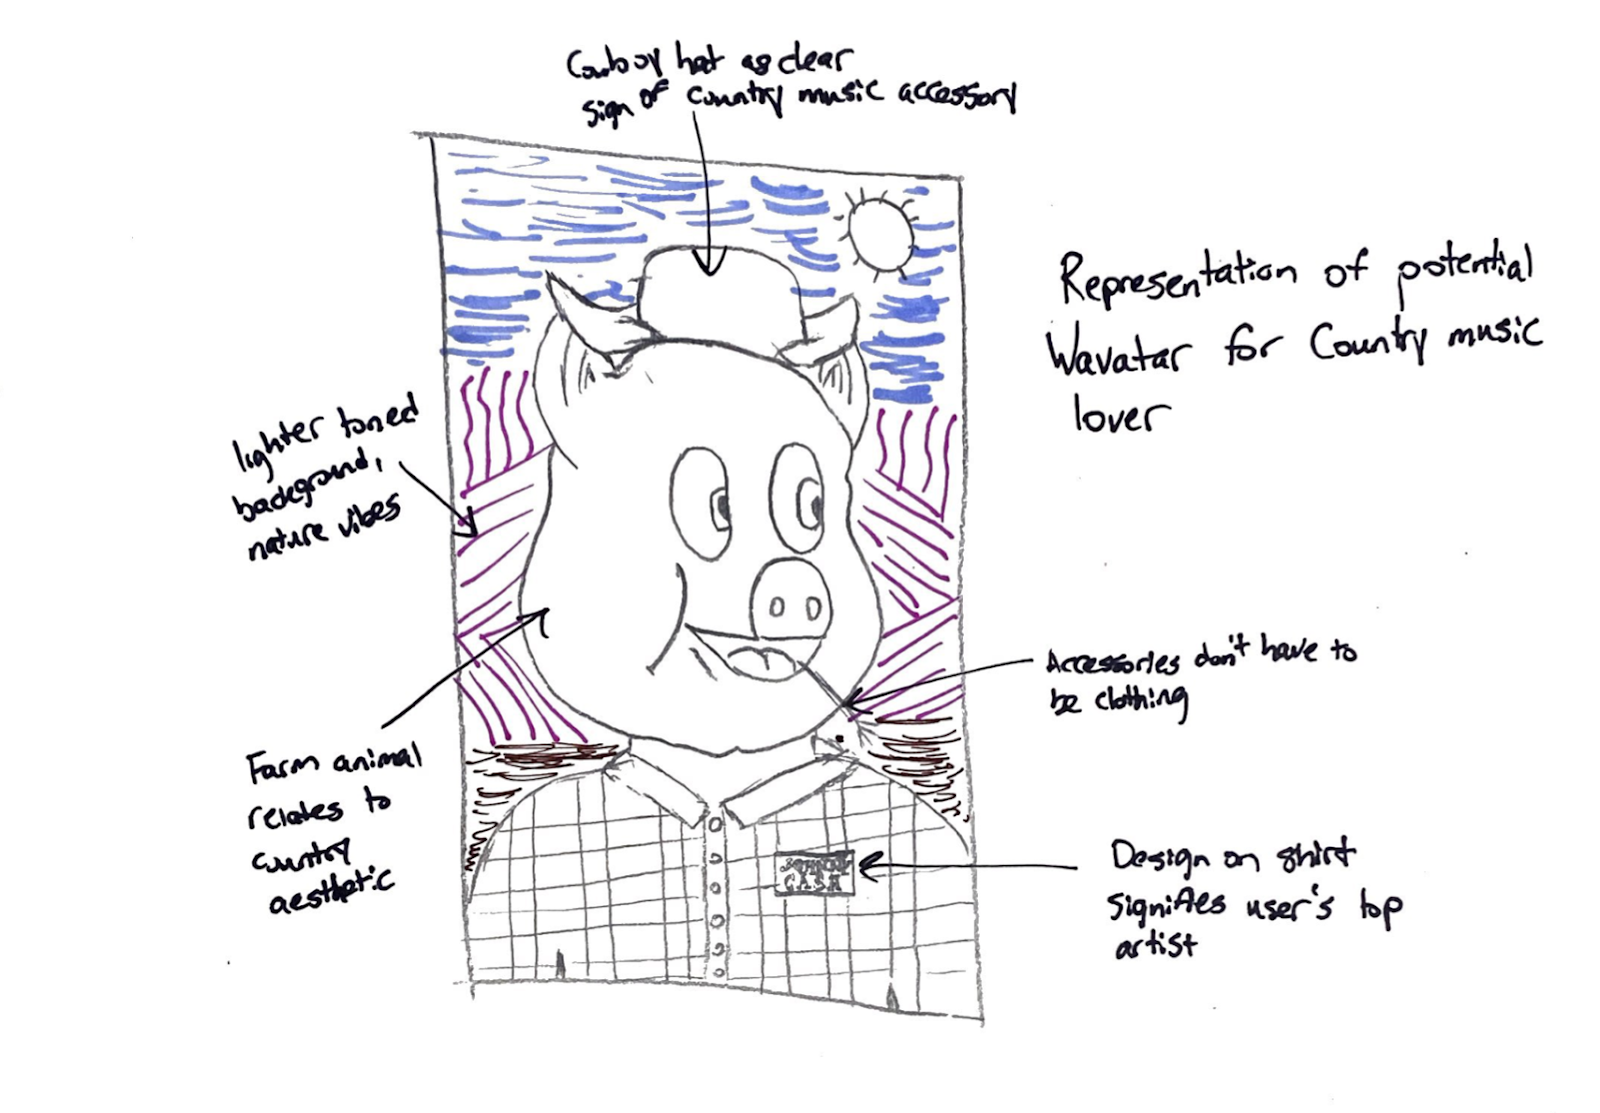 Cowboy hat as clear
sign of country music accessory
Representation of potential
Wavatar for Country music
lover
lighter toned
background,
nature vibes
Accessories don't have to
be clothing
Farm animal
relates to
country
aesthetic
JOHNNY
CASH
Design on shirt
signifies user's top
artist